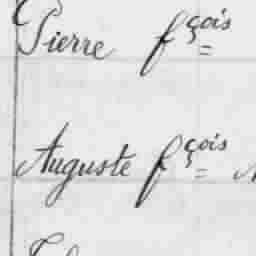 Pierre fçois
Auguste fçois